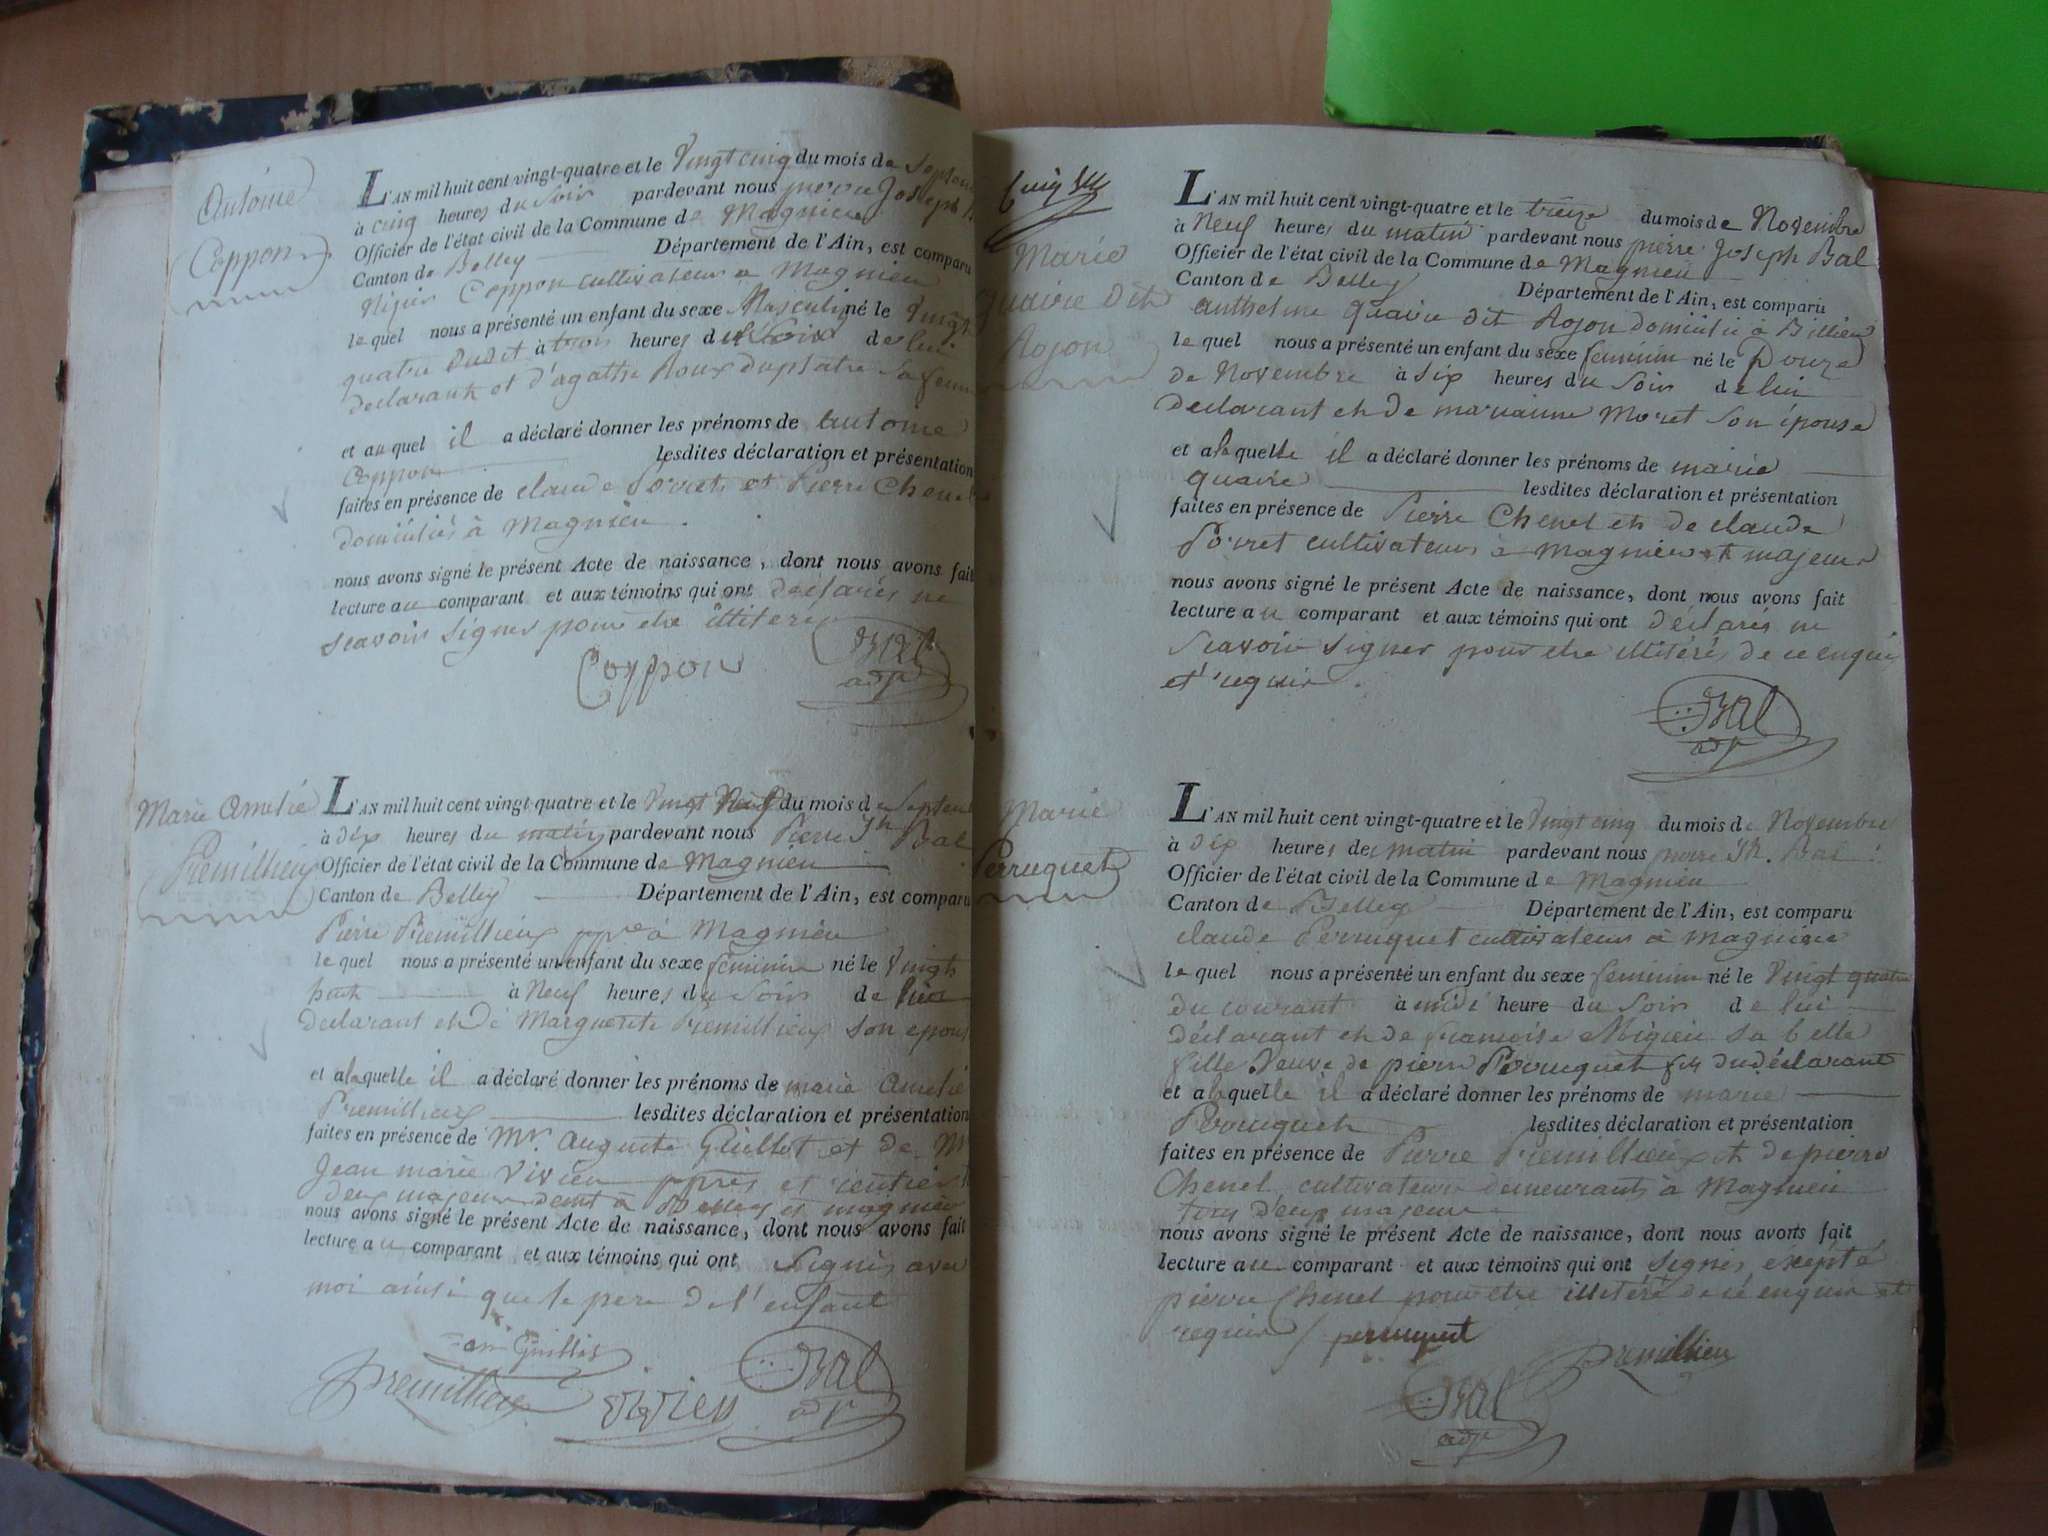 Antoine
Coppon
L'AN mil huit cent vingt-quatre et le Vingt cinq du mois de Septem
à cinq heures du Soir pardevant nous pierre Joseph
Officier de l'état civil de la Commune de Magnieu
Canton de Belley Département de l'Ain, est comparu
Coppon cultivateur à Magnieu
le quel nous a présenté un enfant du sexe Masculin né le Vingt
quatre dudit à trois heures du Soir de lui
declarant et d'agathe Roux duplatre Sa femme
et au quel il a déclaré donner les prénoms de antoine
Coppon lesdites déclaration et présentation
faites en présence de claude Porret et Pierre Chenel
domiciliés à Magnieu.
nous avons signé le présent Acte de naissance, dont nous avons fait
lecture au comparant et aux témoins qui ont declarés ne
scavoir signer pour etre illiteré
Coppon Bal
adjt
Marie Amelie
Premillieu
L'AN mil huit cent vingt-quatre et le Vingt Neuf du mois de Septem
à dix heures du matin pardevant nous Pierre Jh Bal
Officier de l'état civil de la Commune de Magnieu
Canton de Belley Département de l'Ain, est comparu
Pierre Premillieux ppre à Magnieu
le quel nous a présenté un enfant du sexe feminin né le Vingt
huit à Neuf heures du Soir de lui
declarant et de Marguerite Premillieux son epouse
et a laquelle il a déclaré donner les prénoms de marie Amelie
Premillieux lesdites déclaration et présentation
faites en présence de Mr. Auguste Guillot et de Mr
Jean marie Vivien ppres et rentier
deux majeurs demt à Belley et magnieu
nous avons signé le présent Acte de naissance, dont nous avons fait
lecture au comparant et aux témoins qui ont Signés avec
moi ainsi que le pere de l'enfant
Premillieux vivien Bal
adjt
Marie
quaire dit
Rojon
L'AN mil huit cent vingt-quatre et le treize du mois de Novembre
à Neuf heures du matin pardevant nous pierre Joseph Bal
Officier de l'état civil de la Commune de Magnieu
Canton de Belley Département de l'Ain, est comparu
anthelme quaire dit Rojon domicilié à Billieu
le quel nous a présenté un enfant du sexe feminin né le Douze
de Novembre à Six heures du Soir de lui
declarant et de marianne Moret Son épouse
et a la quelle il a déclaré donner les prénoms de marie
quaire lesdites déclaration et présentation
faites en présence de Pierre Chenel et de claude
Porret cultivateurs à Magnieu et majeurs
nous avons signé le présent Acte de naissance, dont nous avons fait
lecture au comparant et aux témoins qui ont déclarés ne
Scavoir signer pour etre illitérés de ce enquis
et requis.
Bal
adjt
Marie
Perruquet
L'AN mil huit cent vingt-quatre et le Vingt cinq du mois de Novembre
à dix heures de matin pardevant nous pierre Jh. Bal
Officier de l'état civil de la Commune de Magnieu
Canton de Belley Département de l'Ain, est comparu
claude Perruquet cultivateur à Magnieu
le quel nous a présenté un enfant du sexe feminin né le Vingt quatre
du courant à midi heure du Soir de lui
déclarant et de francoise Nigieu sa belle
fille Veuve de pierre Perruquet fils du déclarant
et a laquelle il a déclaré donner les prénoms de marie
Perruquet lesdites déclaration et présentation
faites en présence de Pierre Premillieux et de pierre
Chenel cultivateurs demeurants à Magnieu
tous deux majeurs
nous avons signé le présent Acte de naissance, dont nous avons fait
lecture au comparant et aux témoins qui ont signés exepté
pierre Chenel pour etre illitéré de ce enquis et
requis / perruquet
Premillieu
Bal
adjt